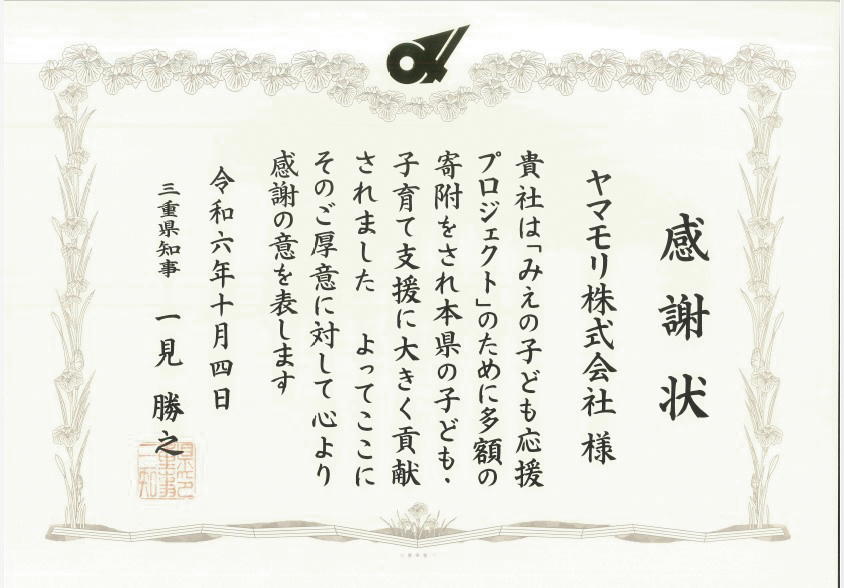 感謝状
ヤマモリ株式会社 様
貴社は「みえの子ども応援
プロジェクト」のために多額の
寄附をされ本県の子ども・
子育て支援に大きく貢献
されました よってここに
そのご厚意に対して心より
感謝の意を表します
令和六年十月四日
三重県知事 一見 勝之